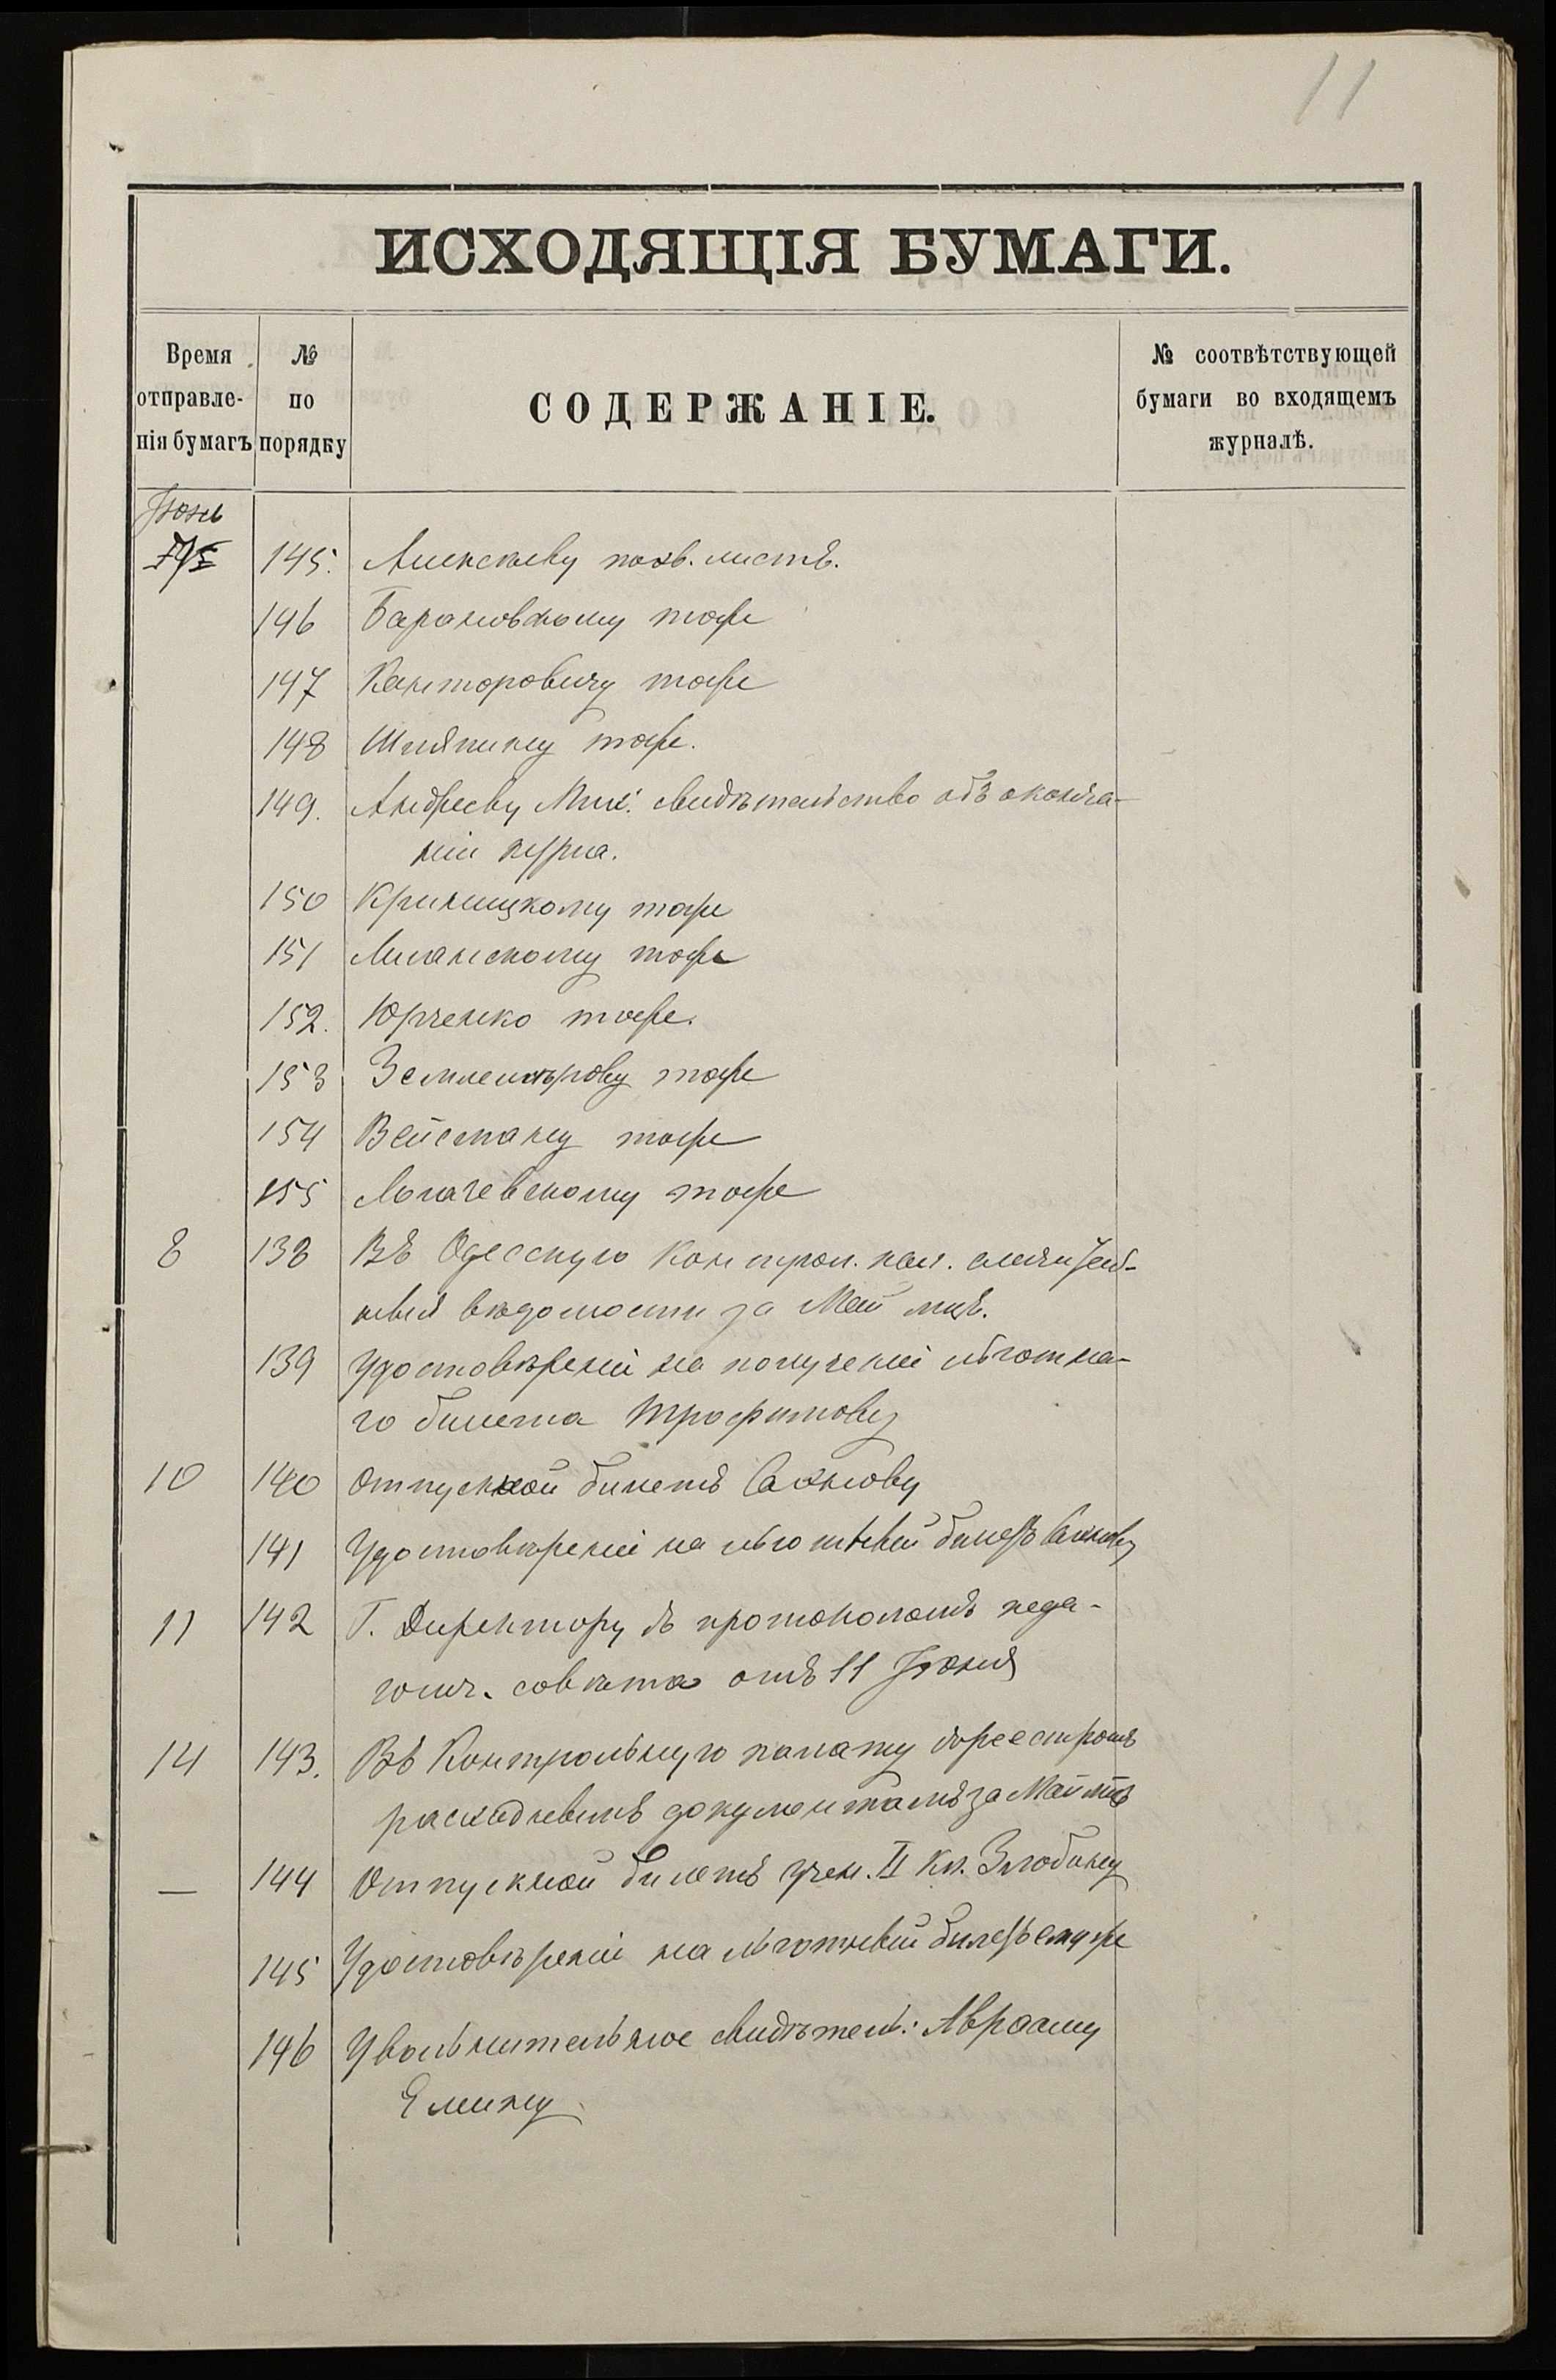 11
ИСХОДЯЩІЯ БУМАГИ.
Время отправле- нія бумагъ
№ по порядку
СОДЕРЖАНІЕ.
№ соотвѣтствующей бумаги во входящемъ журналѣ.
Іюнь
145. Алексѣеву похв. листъ.
146 Барановскому тоже
147 Канторовичу тоже
148 Шляпину тоже.
149. Андрееву Мих: свидѣтельство объ оконча-
ніи курса.
150 Криницкому тоже
151 Миланскому тоже
152. Юрченко тоже.
153 Землемѣрову тоже
154 Вейсману тоже
155 Логачевскому тоже
8 138 Въ Одесскую Контрол. пал.
вѣдомости за Май мцъ.
139 Удостовѣреніи на полученіи льготна-
го билета Трофимову
10 140 Отпускной билетъ Сахнову
141 Удостовѣреніи на льготный билетъ Сахнову
11 142 Г. Директору съ протоколомъ педа-
гогич. совѣта отъ 11 Іюня
14 143. Въ Контрольную палату съ реестромъ
расходнымъ документамъ за Май мцъ
— 144 Отпускной билетъ учен. II кл. Злобину
145 Удостовѣреніи на льготный билетъ ему же
146 Увольнительное свидѣтел: Аврааму
Елину